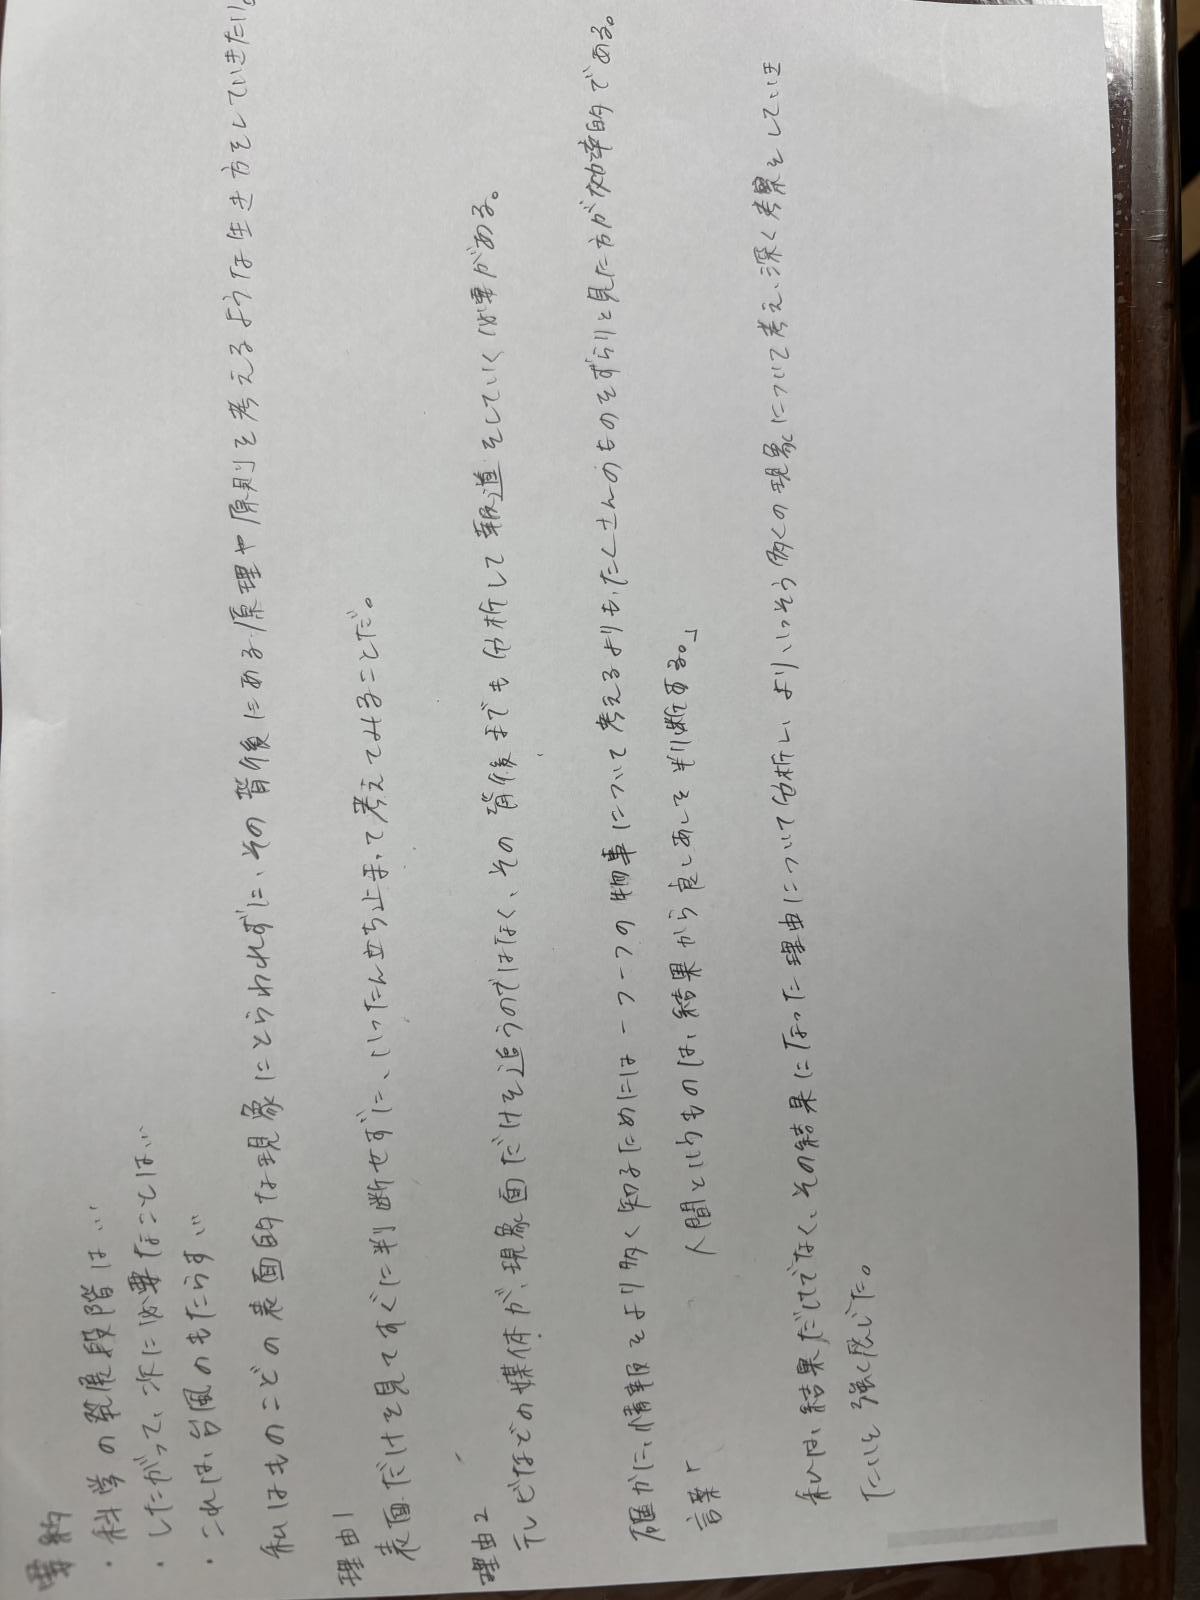 要約
・科学の発展段階は…
・したがって、次に必要なことは…
・これは、台風のもたらす…
私はものごとの表面的な現象にとらわれずに、その背後にある原理や原則を考えるような生き方をしていきたい。
理由1
表面だけを見てすぐに判断せずに、いったん立ち止まって考えてみることだ。
理由2
テレビなどの媒体が、現象面だけを追うのではなく、その背後までも分析して報道をしていく必要がある。
確かに、情報をより多く知るためには一つ一つの物事について考えるよりも、たくさんのものをずらりと見た方が効率的である。
言葉「 人間というものは、結果から良しあしを判断する。」
私は、結果だけでなく、その結果になった理由について分析し、より、いっそう多くの現象について考え、深く考察をしていき
たいと強く感じた。